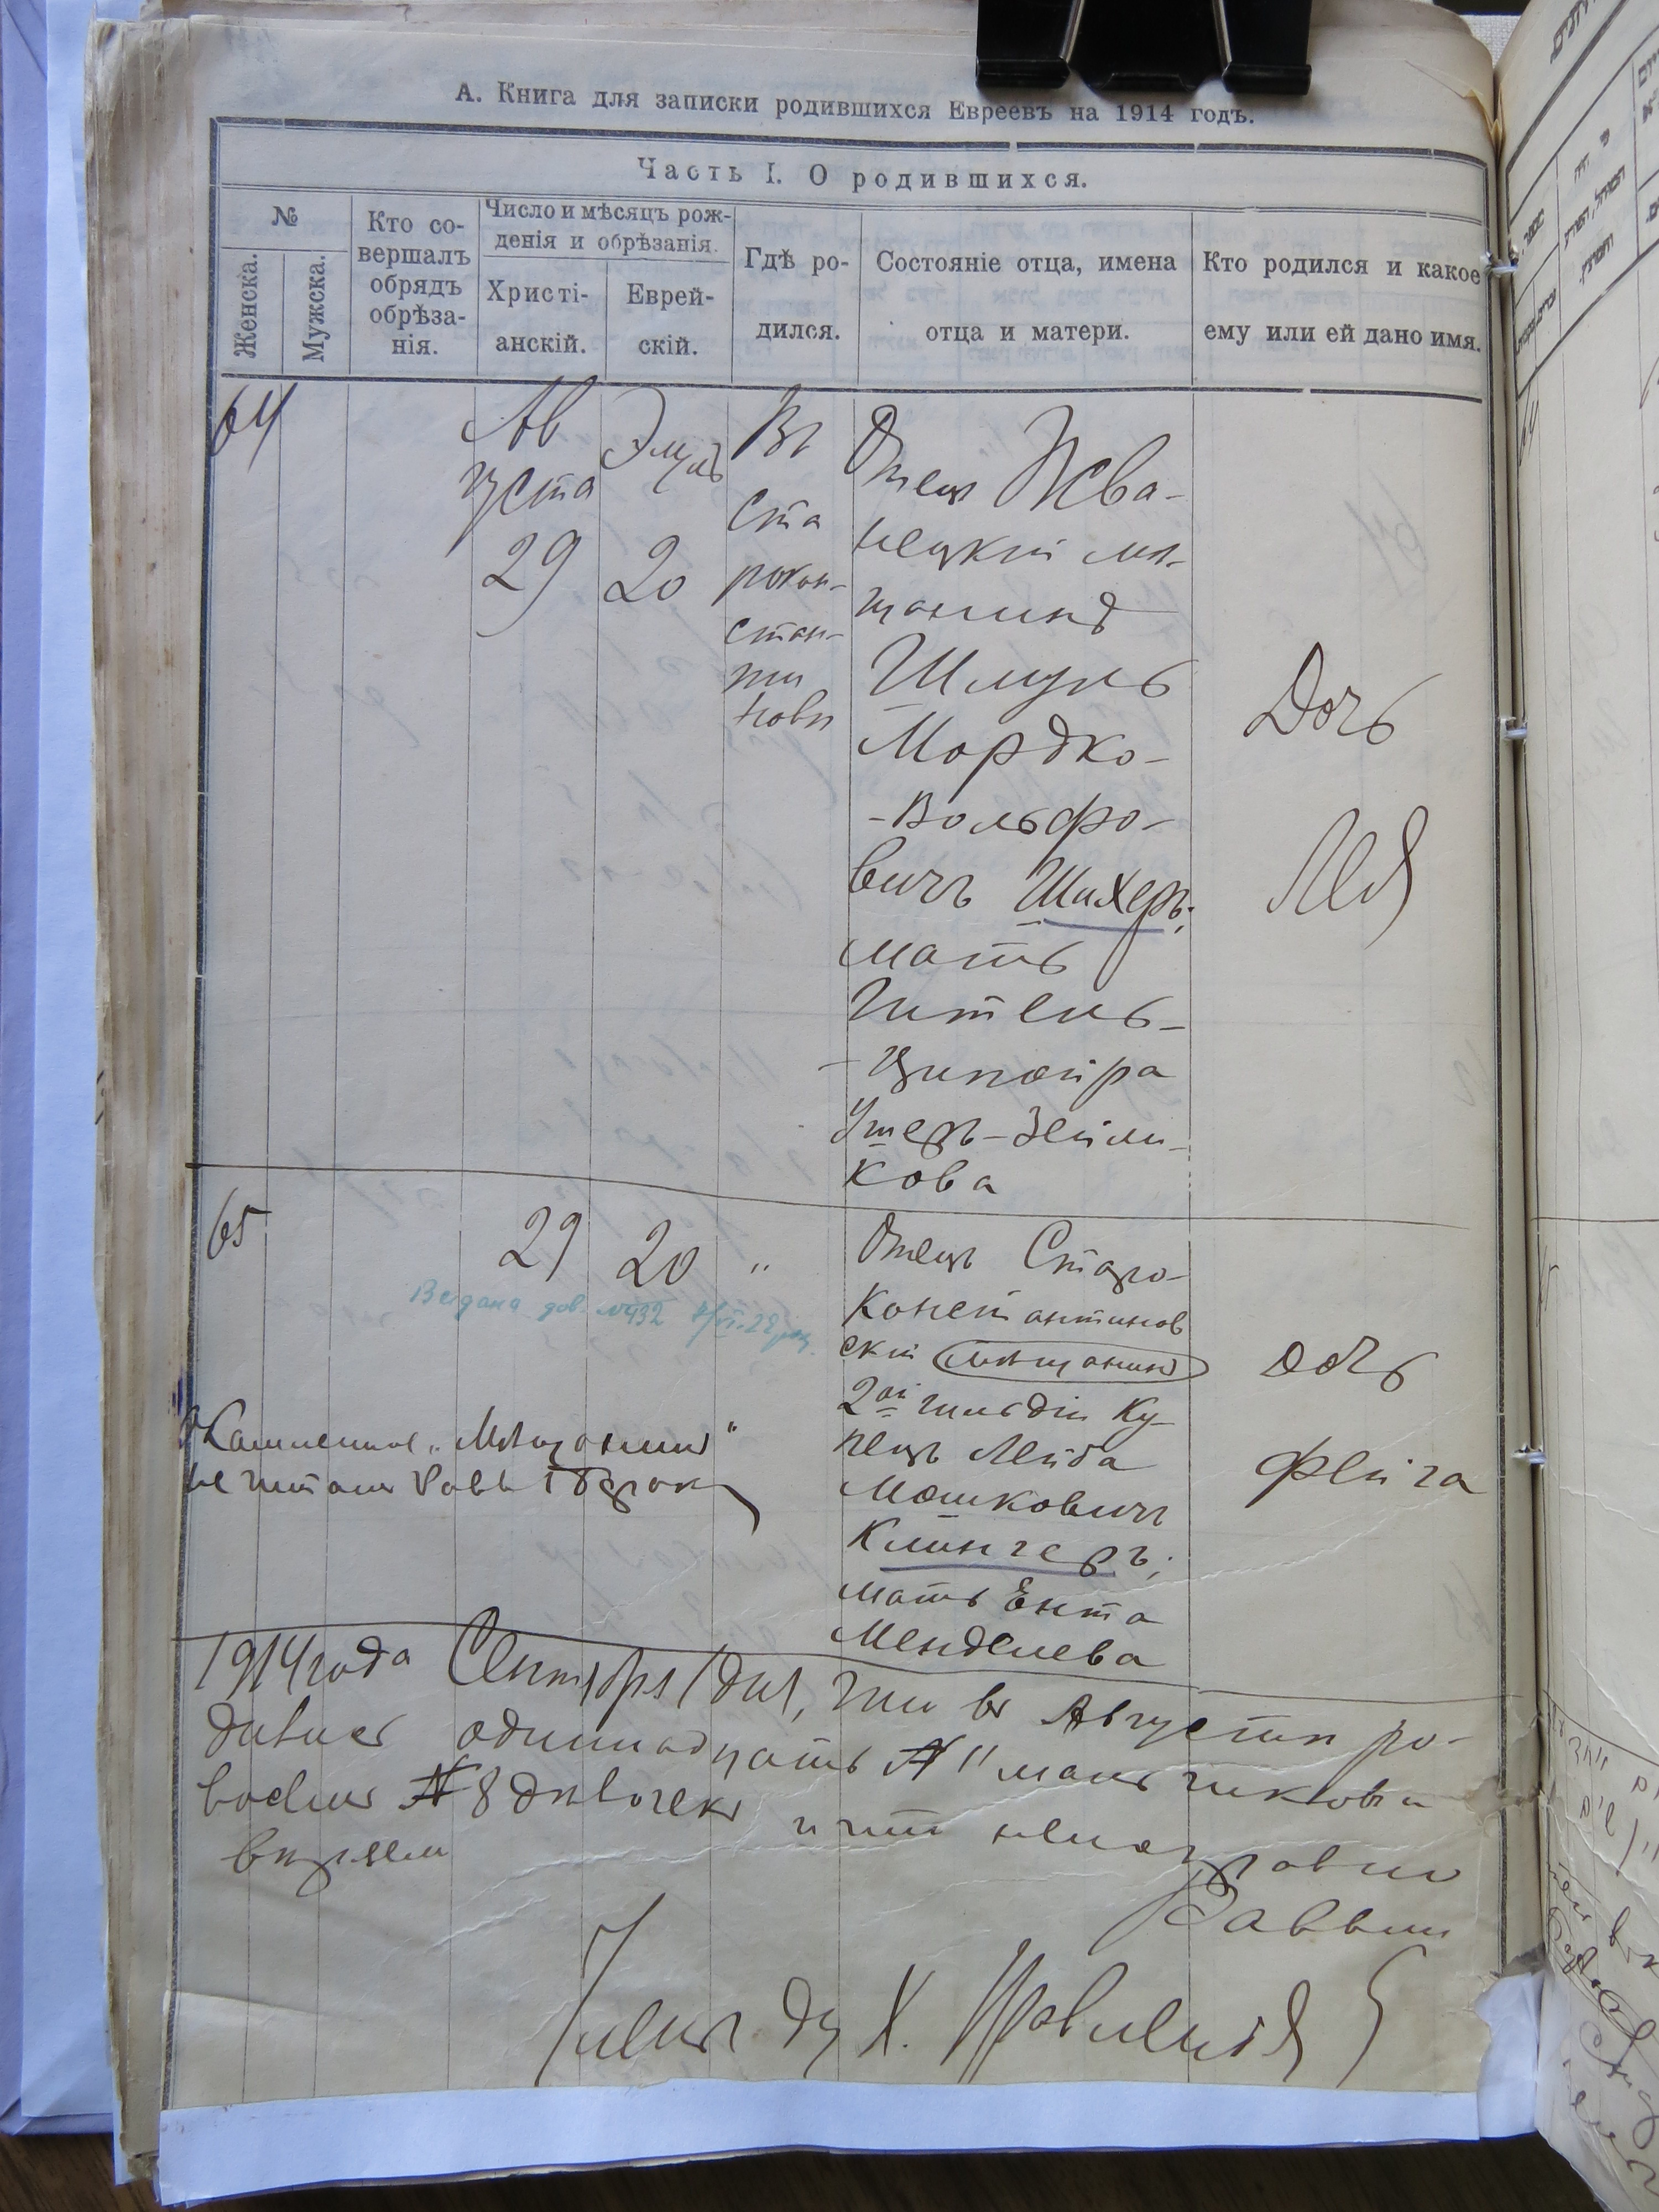 А. Книга для записки родившихся Евреевъ на 1914 годъ.
Часть I. О родившихся.
№
Женска.
Мужска.
Кто со-
вершалъ
обрядъ
обрѣза-
нія.
Число и мѣсяцъ рож-
денія и обрѣзанія.
Христі-
анскій.
Еврей-
скій.
Гдѣ ро-
дился.
Состояніе отца, имена
отца и матери.
Кто родился и какое
ему или ей дано имя.
64
Ав
густа
29
Элулъ
20
Въ
Ста
рокон-
стан-
ти
новѣ
Отецъ Жва-
нецкій мѣ-
щанинъ
Шмуль
Мордко-
-Вольфо-
вичъ Шихеръ;
мать
Гитель-
-Ципойра
Ушеръ-Зейли-
кова
Дочь
Лея
65
29
20
"
Отецъ Старо-
Констaнтинов
скій мѣщанинъ
2ой гильдіи Ку-
пецъ Лейба
Мошковичъ
Клингеръ;
мать Ента
Менделева
дочь
Фейга
Выдана дов. №432
"Мѣщанинъ"
не читать
1914 года Сентября 1 дня, что въ Августѣ ро-
дилось одиннадцать № 11 мальчиковъ и
восемь № 8 дѣвочекъ и что
вѣрно
Раввин